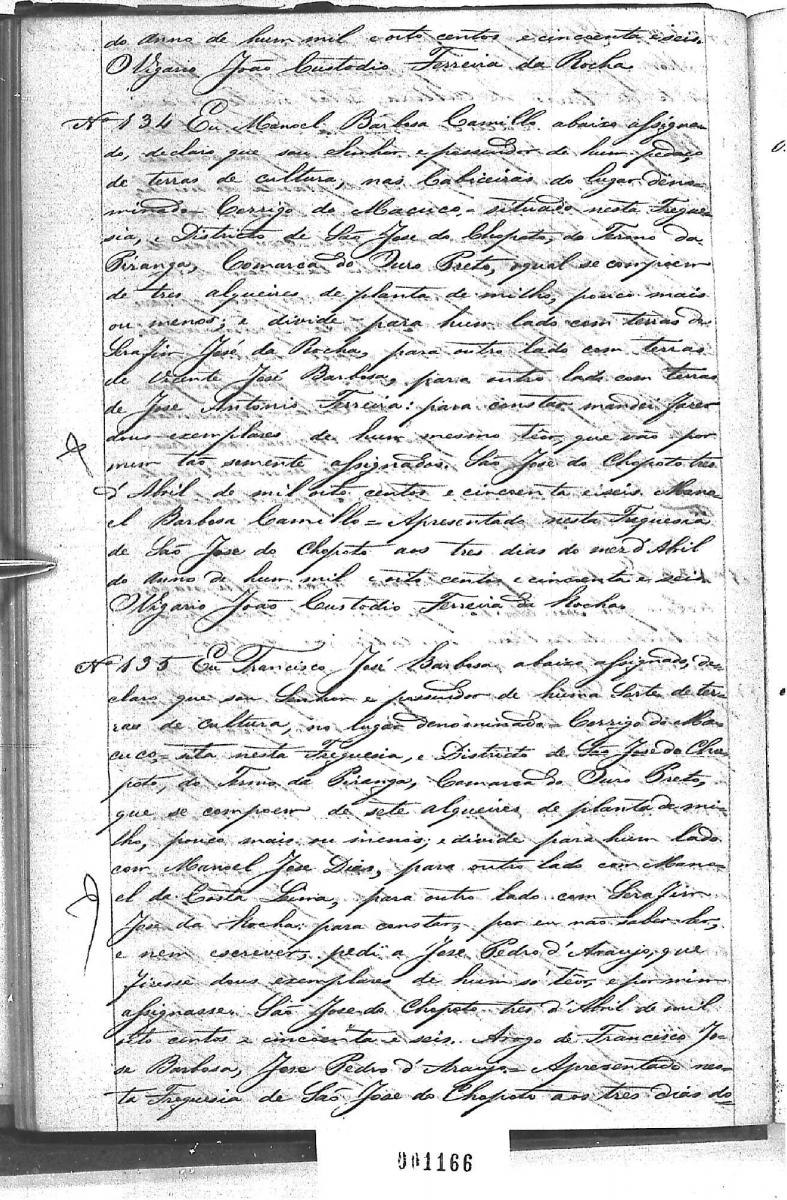 do anno de hum mil e oito centos e cincoenta e seis.
O Vigario João Custodio Ferreira da Rocha.
Nº 134 Eu Manoel Barbosa Camillo abaixo assigna-
do, declaro que sou Senhor e possuidor de hum pedaço
de terras de cultura, nas Cabiceiras do lugar deno-
minado = Corrigo do Macuco = situado nesta Fregue-
sia, e Districto de São Jose do Chopoto, do Termo da
Piranga, Comarca do Ouro Preto, o qual se compoem
de tres alqueires de planta de milho, pouco mais
ou menos; e divide para hum lado com terras de
Serafim José da Rocha, para outro lado com terras
de Vicente José Barbosa, para outro lado com terras
de Jose Antonio Ferreira: para constar mandei fazer
dous exemplares de hum mesmo têor, que vão por
mim tão somente assignados. São Jose do Chopoto tres
d'Abril de mil oito centos e cincoenta e seis. Mano-
el Barbosa Camillo = Apresentado nesta Freguesia
de São Jose do Chopoto aos tres dias do mez d'Abril
do anno de hum mil e oito centos e cincoenta e seis.
O Vigario João Custodio Ferreira da Rocha.
Nº 135 Eu Francisco José Barbosa abaixo assignado, de-
claro que sou Senhor e possuidor de huma Sorte de ter-
ras de cultura, no lugar denominado = Corrigo do Ma-
cuco, = sita nesta Freguesia, e Districto de São Jose do Cho-
poto, do Termo da Piranga, Comarca do Ouro Preto,
que se compoem de sete alqueires de planta de mi-
lho, pouco mais ou menos; e divide para hum lado
com Manoel Jose Dias, para outro lado com Mano-
el da Costa Lima, para outro lado com Serafim
Jose da Rocha: para constar, por eu não saber ler,
e nem escrever, pedi a Jose Pedro d'Araujo, que
fizesse dous exemplares de hum só têor, e por mim
assignasse. São Jose do Chopoto tres d'Abril de mil
oito centos e cincoenta e seis. Arogo de Francisco Jo-
se Barbosa, Jose Pedro d'Araujo = Apresentado nes-
ta Freguesia de São Jose do Chopoto aos tres dias do
001166